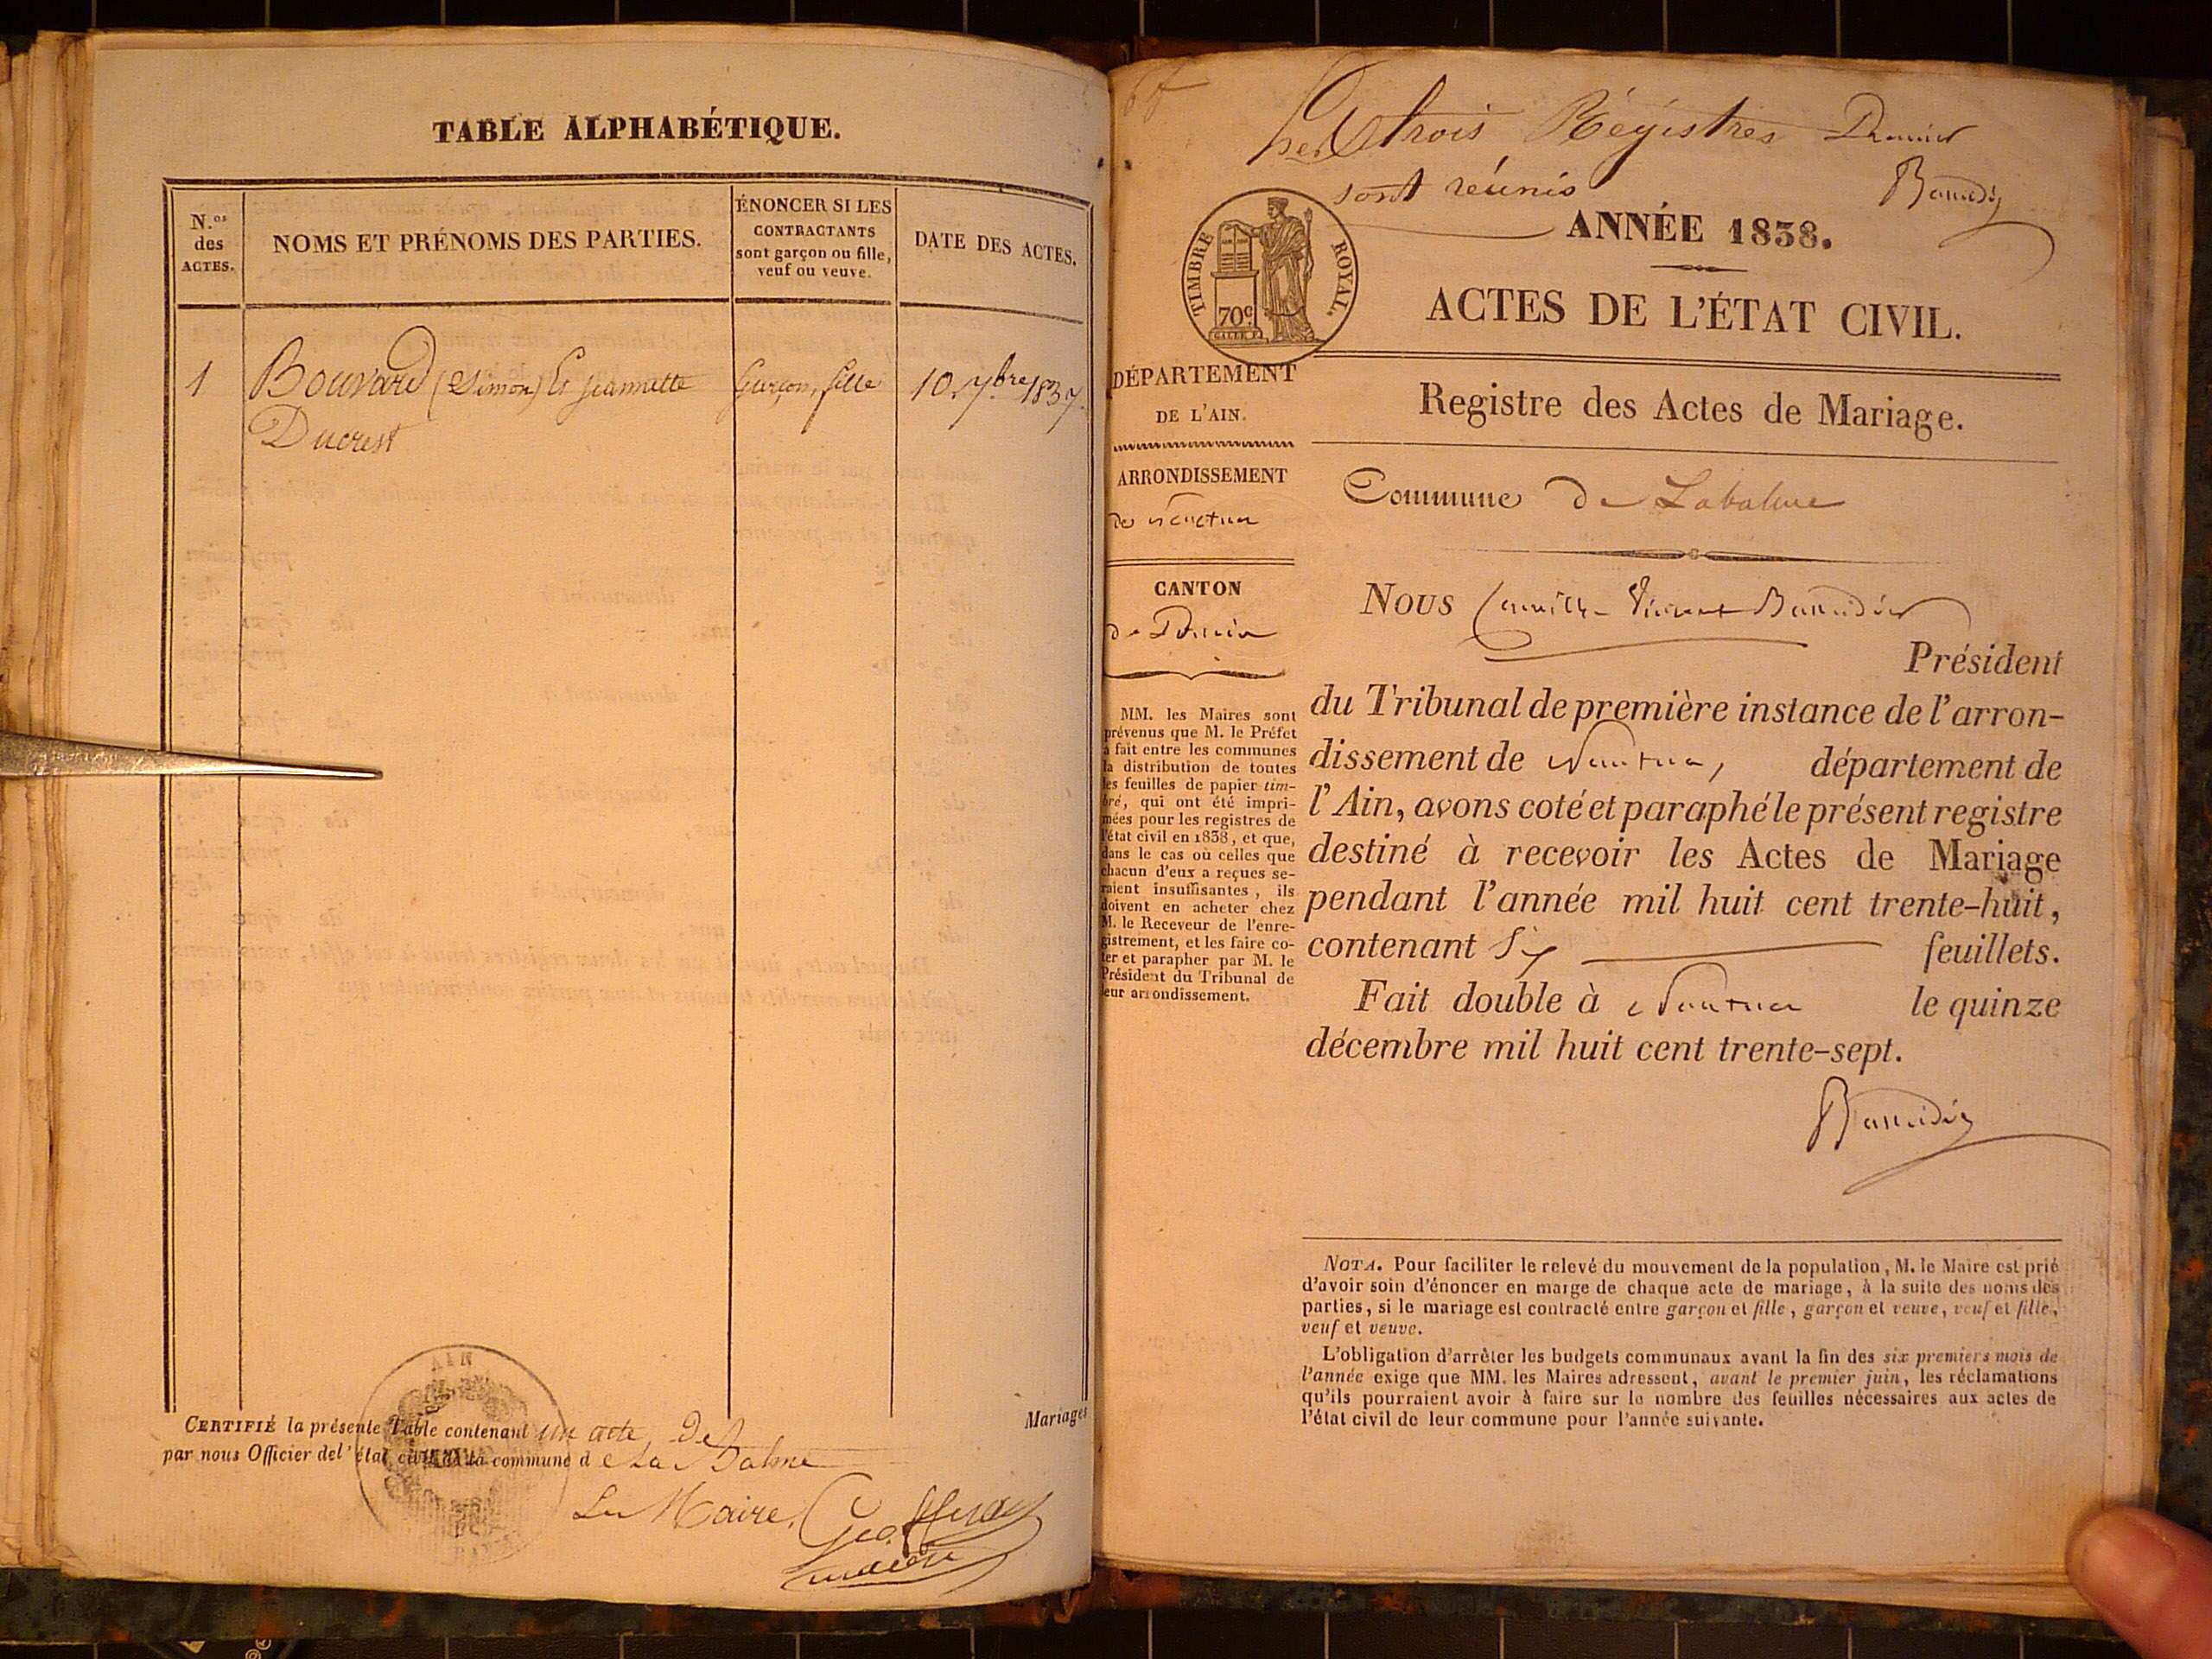 TABLE ALPHABÉTIQUE.
N.os
des
ACTES.
NOMS ET PRÉNOMS DES PARTIES.
ÉNONCER SI LES
CONTRACTANTS
sont garçon ou fille,
veuf ou veuve.
DATE DES ACTES.
1 Bouvard (Simon) Et Jeannette garçon, fille 10. 7bre 1837.
Ducrest
CERTIFIÉ la présente Table contenant un acte de Mariages
par nous Officier de l'état civil de la commune de La Balme
Le Maire,
maire
trois Régistres Premier
sont réunis
ANNÉE 1838.
TIMBRE ROYAL.
70c
ACTES DE L'ÉTAT CIVIL.
DÉPARTEMENT
DE L'AIN.
ARRONDISSEMENT
de Nantua
CANTON
de Poncin
MM. les Maires sont
prévenus que M. le Préfet
a fait entre les communes
la distribution de toutes
les feuilles de papier tim-
bré, qui ont été impri-
mées pour les registres de
l'état civil en 1838, et que,
dans le cas où celles que
chacun d'eux a reçues se-
raient insuffisantes, ils
doivent en acheter chez
M. le Receveur de l'enre-
gistrement, et les faire co-
ter et parapher par M. le
Président du Tribunal de
leur arrondissement.
Registre des Actes de Mariage.
Commune de Labalme
Nous Camille Vincent
Président
du Tribunal de première instance de l'arron-
dissement de Nantua, département de
l'Ain, avons coté et paraphé le présent registre
destiné à recevoir les Actes de Mariage
pendant l'année mil huit cent trente-huit,
contenant Six feuillets.
Fait double à Nantua le quinze
décembre mil huit cent trente-sept.
NOTA. Pour faciliter le relevé du mouvement de la population, M. le Maire est prié
d'avoir soin d'énoncer en marge de chaque acte de mariage, à la suite des noms des
parties, si le mariage est contracté entre garçon et fille, garçon et veuve, veuf et fille,
veuf et veuve.
L'obligation d'arrêter les budgets communaux avant la fin des six premiers mois de
l'année exige que MM. les Maires adressent, avant le premier juin, les réclamations
qu'ils pourraient avoir à faire sur le nombre des feuilles nécessaires aux actes de
l'état civil de leur commune pour l'année suivante.